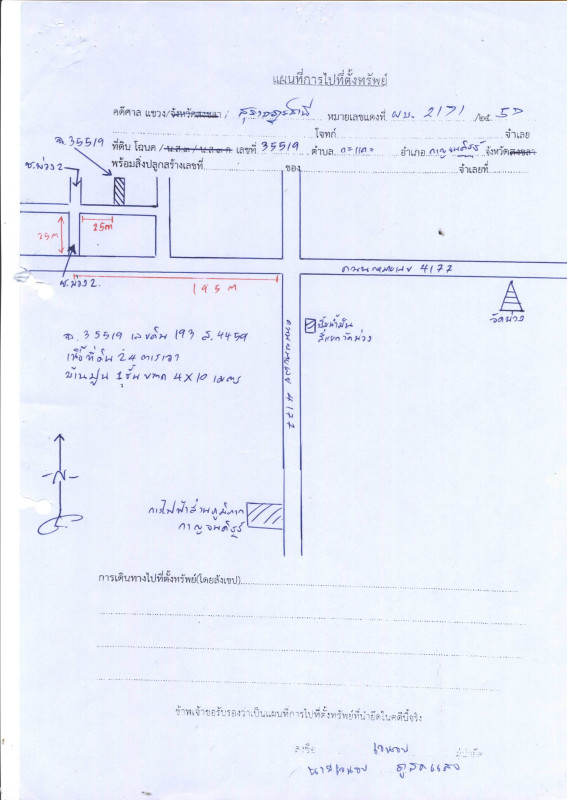 แผนที่การไปที่ตั้งทรัพย์
คดีศาล แขวง/จังหวัดสงขลา / สุราษฎร์ธานี หมายเลขแดงที่ ผบ. 2171 /๒๕ 50
โจทก์ จำเลย
ที่ดิน โฉนด / น.ส.๓ / น.ส.๓ ก เลขที่ 35519 ตำบล กะแดะ อำเภอ กาญจนดิษฐ์ จังหวัดสงขลา
พร้อมสิ่งปลูกสร้างเลขที่ ของ จำเลยที่
ฉ. 35519
ซ.ม่วง 2
25m
25m
ซ.ม่วง 2.
195m
ถนนหมายเลข 4177
วัดม่วง
ปั๊มน้ำมัน
สี่แยกวัดม่วง
ฉ. 35519 เลขดิน 193 ส. 4459
เนื้อที่ดิน 24 ตารางวา
บ้านปูน 1 ชั้น ขนาด 4X10 เมตร
N
การไฟฟ้าส่วนภูมิภาค
กาญจนดิษฐ์
การเดินทางไปที่ตั้งทรัพย์(โดยสังเขป)
ข้าพเจ้าขอรับรองว่าเป็นแผนที่การไปที่ตั้งทรัพย์ที่นำยึดในคดีนี้จริง
ลงชื่อ ผู้นำยึด